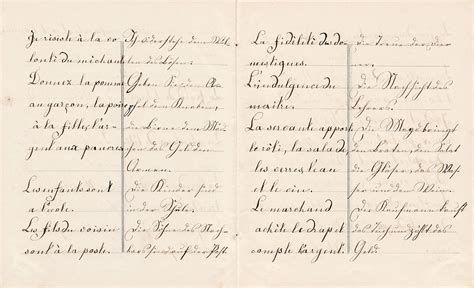 Je résiste à la vo
lonté du méchant
Donnez la pomme
au garçon, la poire
à la fille, l'ar
gent aux pauvres
Les enfants sont
à l'école.
Les fils du voisin
sont à la poste.
Ich widerstehe dem Wil
len des Bösen.
Geben Sie den A
pfel dem Knaben,
die Birne dem Mäd
chen das Geld den
Armen.
Die Kinder sind
in der Schule.
Die Söhne des Nach
bars sind auf der Post.
La fidélité des do
mestiques.
L'indulgence du
maître.
La servante apporte
le rôti, la salade,
les verres, l'eau
et le vin.
Le marchand
achète le drap et
compte l'argent.
Die Treue der Die
ner.
Die Nachsicht des
Lehrers.
Die Magd bringt
den Braten, den Salat
die Gläser das Was
ser und den Wein.
Der Kaufmann kauft
das Tuch und zählt das
Geld.